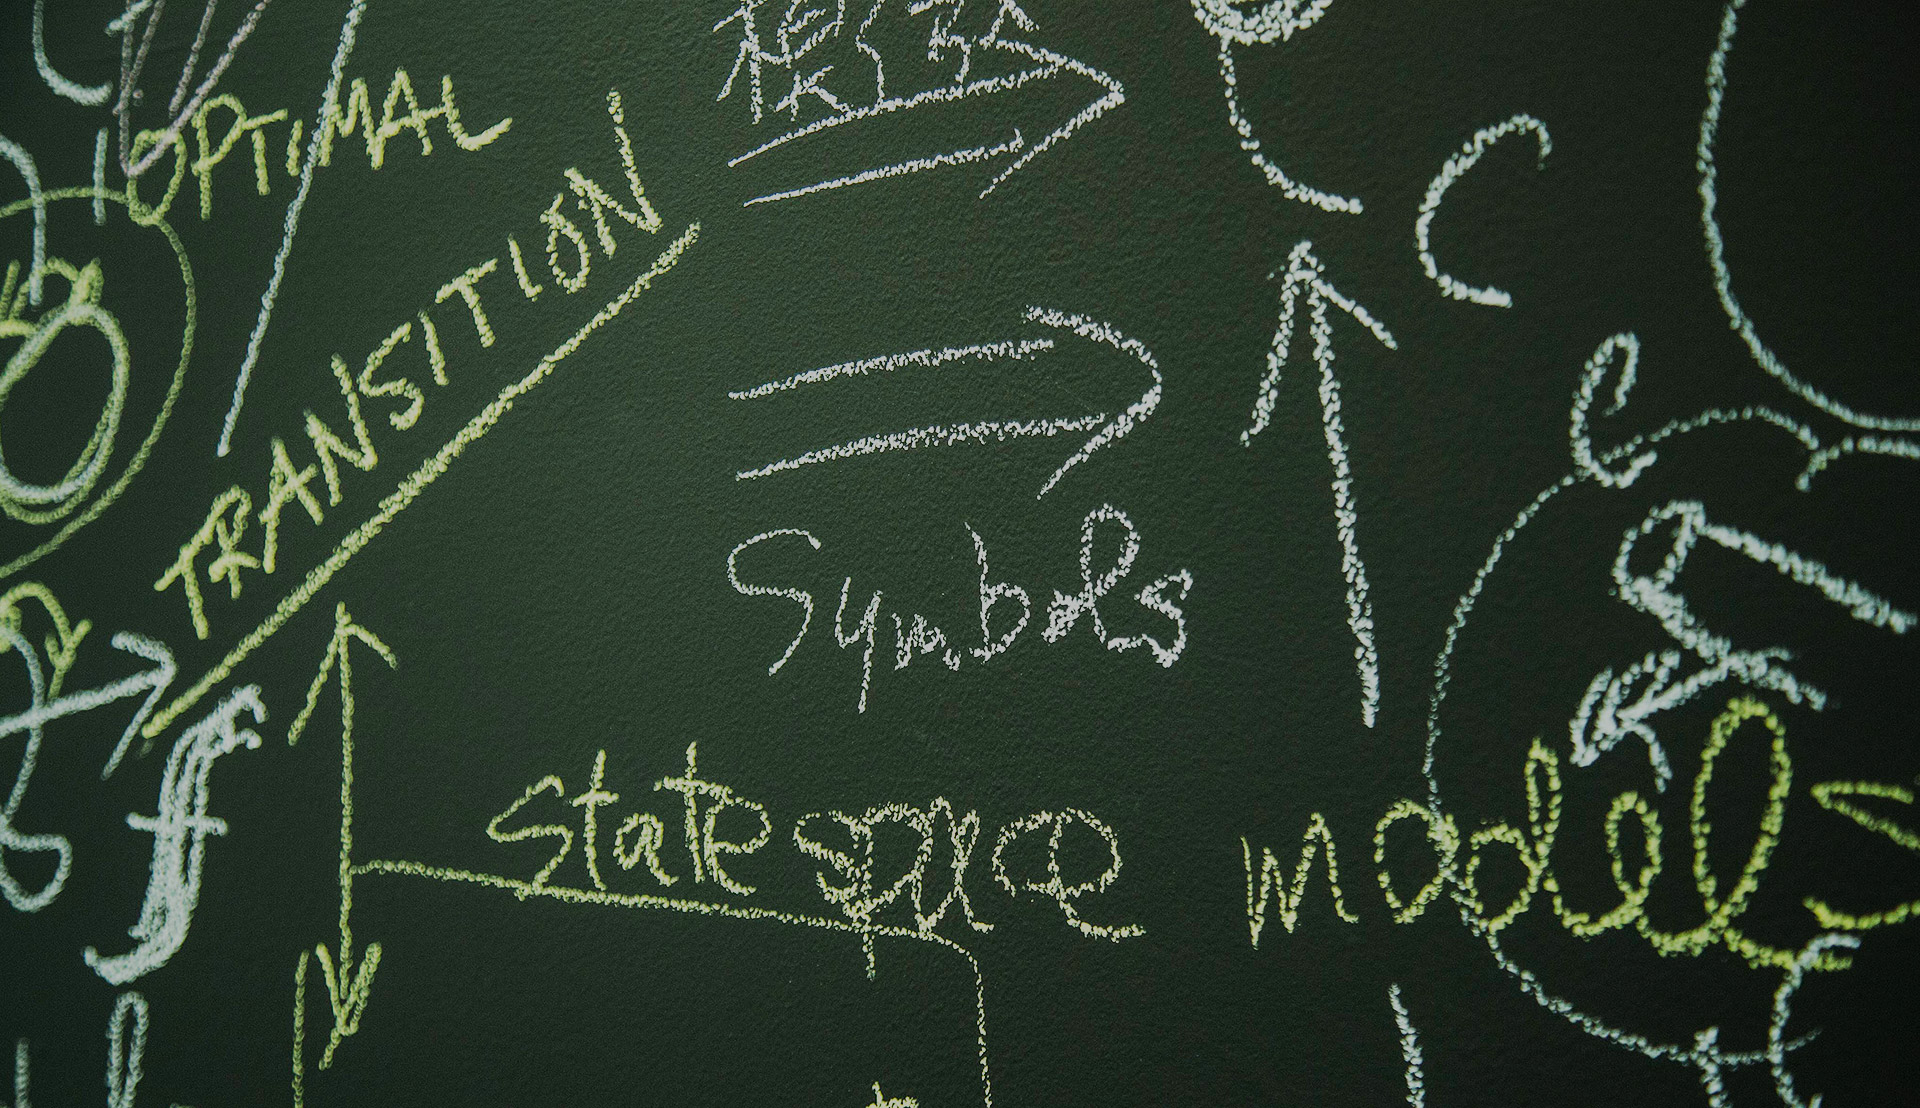 OPTIMAL
TRANSITION
Symbols
State space models